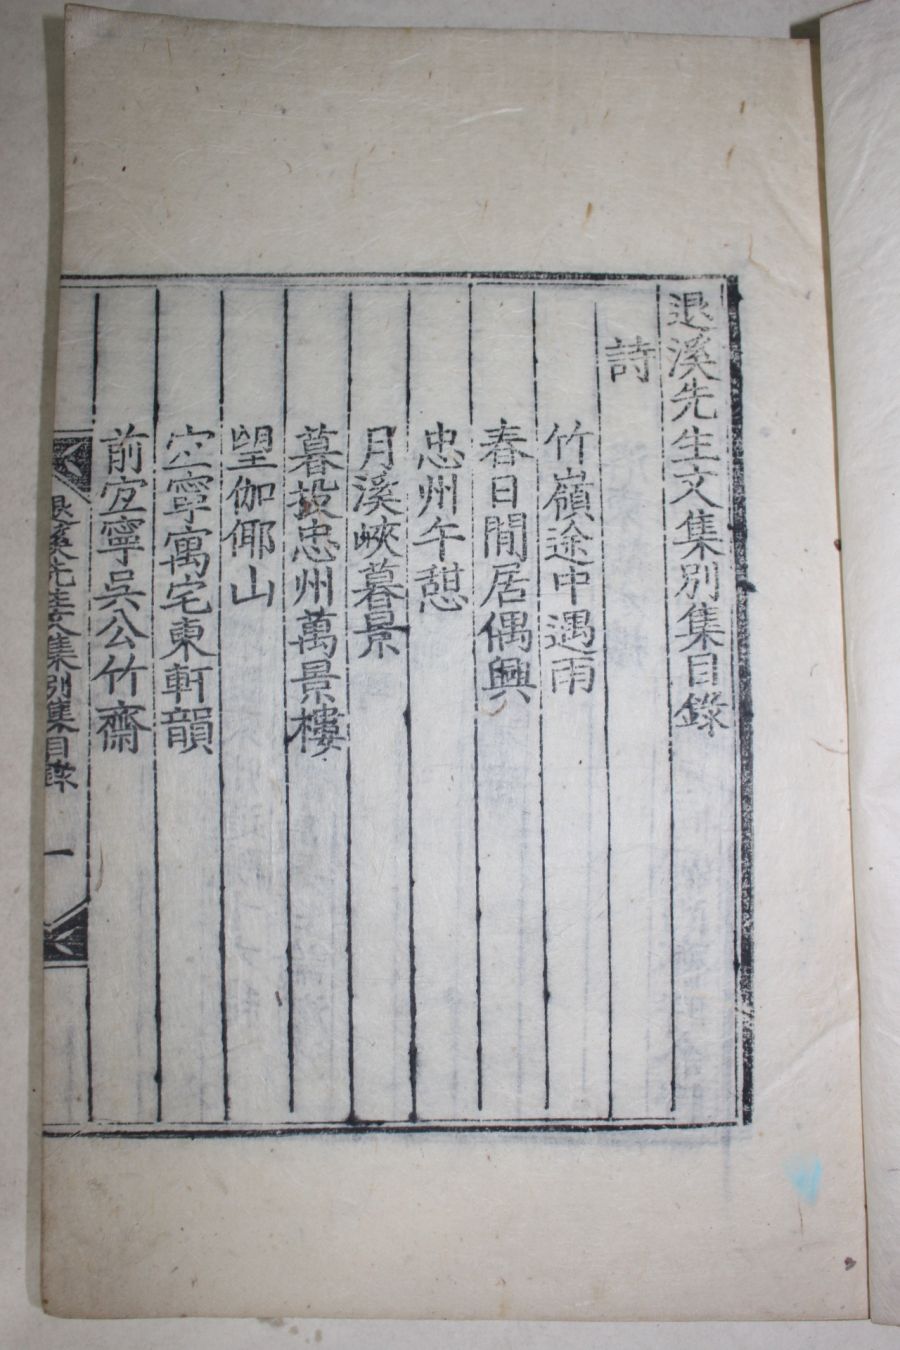 退溪先生文集別集目錄
詩
竹嶺途中遇雨
春日閒居偶興
忠州午憩
月溪峽暮景
暮投忠州萬景樓
望伽倻山
宜寧寓宅東軒韻
前宜寧吳公竹齋
退溪先生文集別集目錄 一